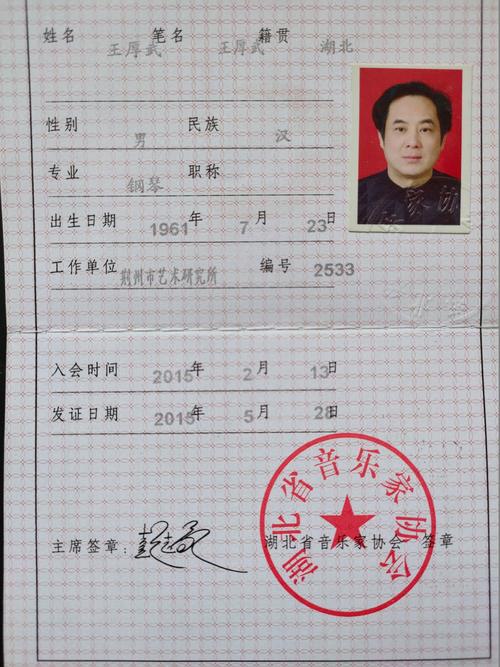 姓名 王厚武 笔名 王厚武 籍贯 湖北
性别 男 民族 汉
专业 钢琴 职称
出生日期 1961年 7月 23日
工作单位 荆州市艺术研究所 编号 2533
入会时间 2015年 2月 13日
发证日期 2015年 5月 28日
主席签章: 湖北省音乐家协会 签章
湖北省音乐家协会